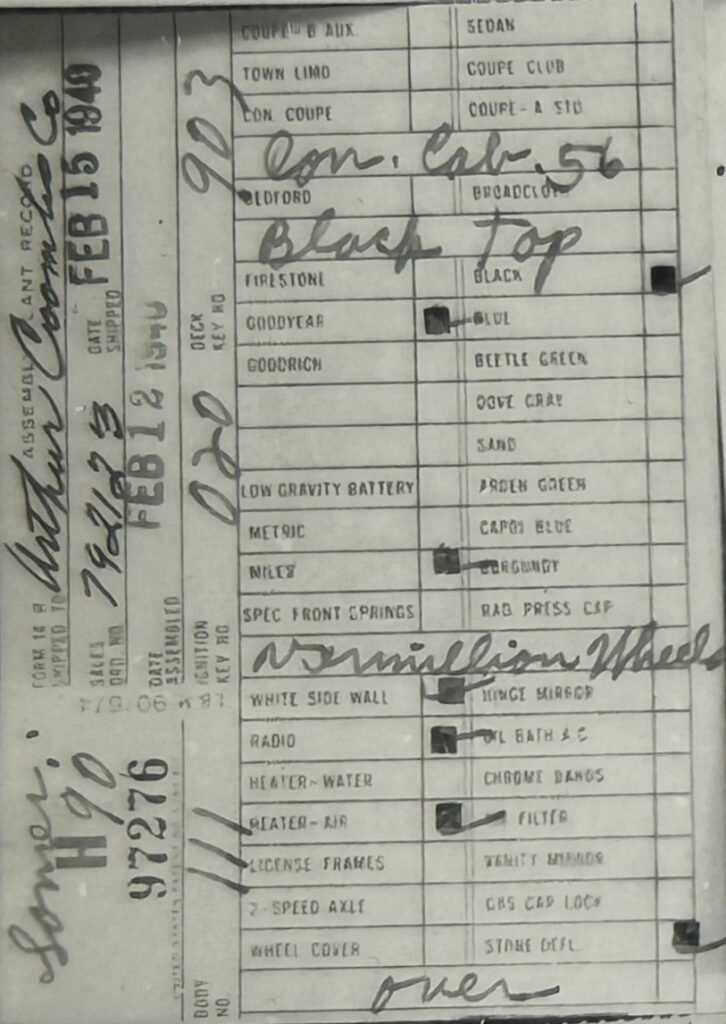 FORM 16 B ASSEMBLY PLANT RECORD
SHIPPED TO Arthur Coombs Co
SALES ORD NO 792123 DATE SHIPPED FEB 15 1940
DATE ASSEMBLED FEB 12 1940
IGNITION KEY NO 020 DECK KEY NO 903
Somer.
H 90
97276
BODY NO. 111
COUPE-B AUX. SEDAN
TOWN LIMO COUPE CLUB
CON. COUPE COUPE-A STD
Con. Cab. 56
BEDFORD BROADCLOTH
Black Top
FIRESTONE BLACK
GOODYEAR BLUE
GOODRICH BEETLE GREEN
DOVE GRAY
SAND
LOW GRAVITY BATTERY ARDEN GREEN
METRIC CAPRI BLUE
MILES BURGUNDY
SPEC FRONT SPRINGS RAD PRESS CAP
Vermillion Wheels
WHITE SIDE WALL HINGE MIRROR
RADIO OIL BATH A C
HEATER-WATER CHROME BANDS
HEATER-AIR FILTER
LICENSE FRAMES VANITY MIRROR
2-SPEED AXLE GAS CAP LOCK
WHEEL COVER STONE DEFL.
over